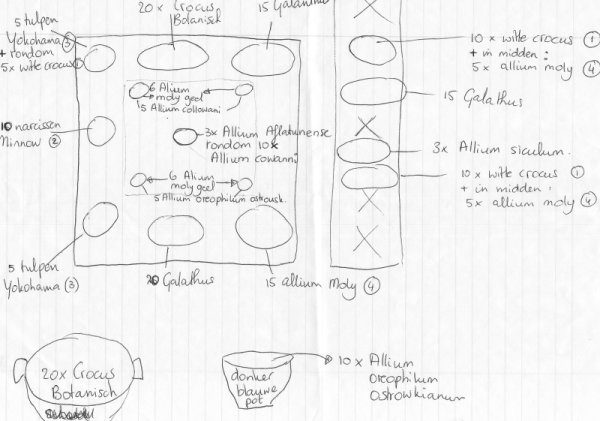 20x Crocus
Botanisch
15 Galanthus
5 tulpen
Yokohama (3)
+ rondom
5x witte crocus (1)
6 Allium
moly geel
5 Allium collowani
10 narcissen
Minnow (2)
3x Allium Aflatunense
rondom 10x
Allium cowanni
6 Alium
moly geel
5 Allium oreophilum ostrousk.
5 tulpen
Yokohama (3)
20 Galathus
15 allium Moly (4)
10 x witte crocus (1)
+ in midden :
5 x allium moly (4)
15 Galathus
3x Allium siculum.
10 x witte crocus (1)
+ in midden :
5 x allium moly (4)
20x Crocus
Botanisch
donker
blauwe
pot
10 x Allium
oreophilum
ostrowkianum